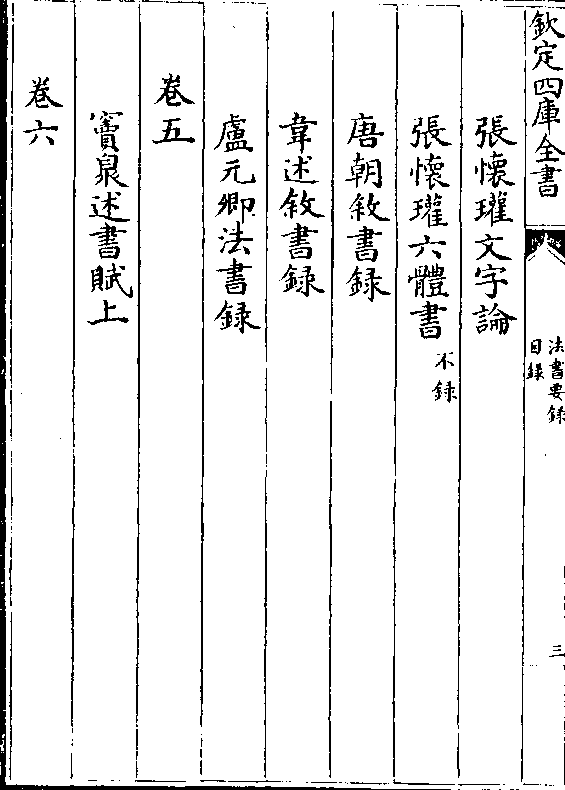 欽定四庫全書
法書要録
目録
三
張懷瓘文字論
張懷瓘六體書不録
唐朝敘書録
韋述敘書録
盧元卿法書録
卷五
竇臮述書賦上
卷六